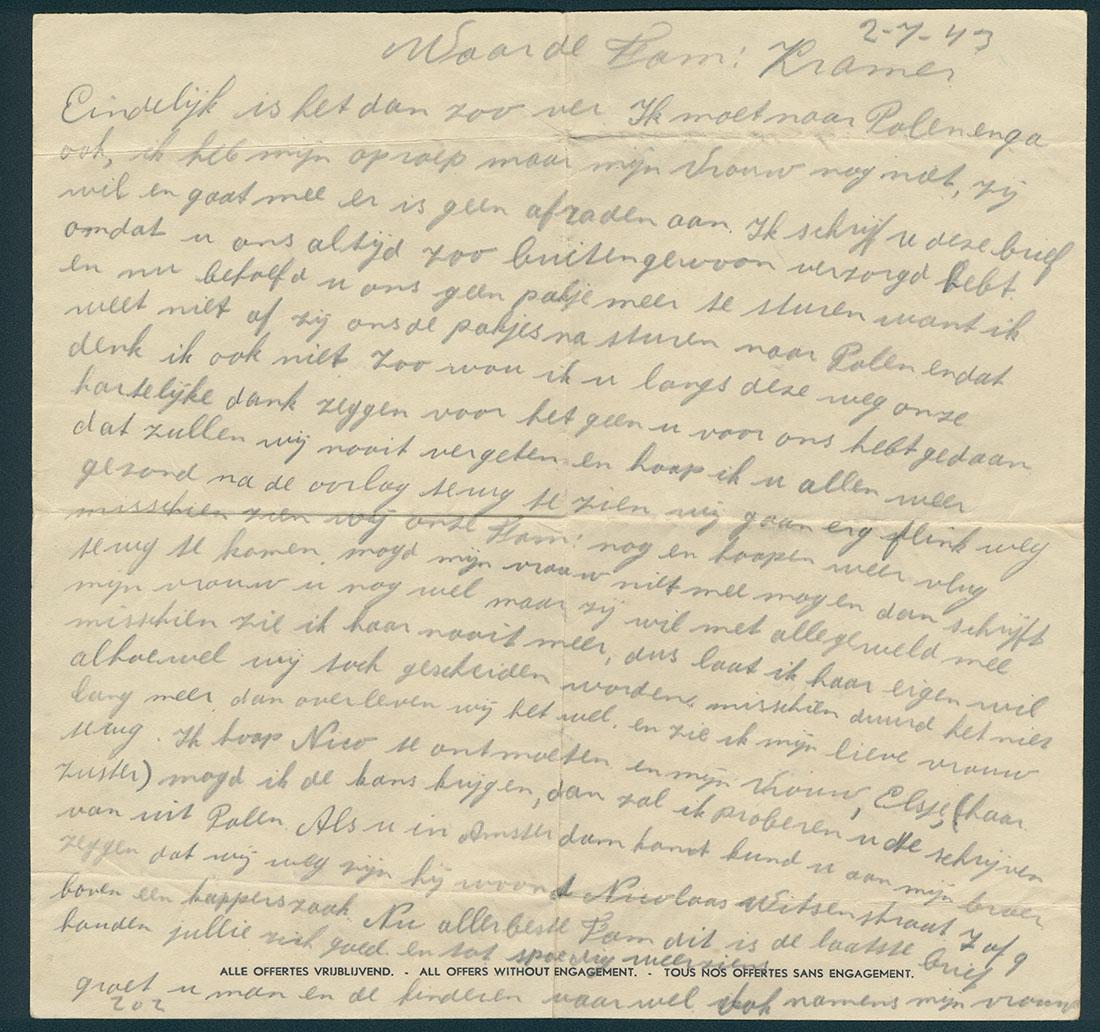 2-7-43
Waarde Fam: Kramer
Eindelijk is het dan zoo ver. Ik moet naar Polen en ga
ook, ik heb mijn oproep maar mijn vrouw nog niet, zij
wil en gaat mee er is geen afraden aan. Ik schrijf u deze brief
omdat u ons altijd zoo buitengewoon verzorgd hebt.
en nu behoefd u ons geen pakje meer te sturen want ik
weet niet of zij ons de pakjes na sturen naar Polen en dat
denk ik ook niet zoo wou ik u langs deze weg onze
hartelijke dank zeggen voor het geen u voor ons hebt gedaan
dat zullen wij nooit vergeten en hoop ik u allen weer
gezond na de oorlog terug te zien wij gaan erg flink weg
misschien zien wij onze Fam: nog en hoopen weer vlug
terug te komen mogd mijn vrouw niet mee mogen dan schrijft
mijn vrouw u nog wel maar zij wil met alle geweld mee
misschien zie ik haar nooit meer, dus laat ik haar eigen wil
alhoewel wij toch gescheiden worden, misschien duurd het niet
lang meer dan overleven wij het wel. en zie ik mijn lieve vrouw
terug. Ik hoop Nico te ontmoeten en mijn vrouw, Elsje, (haar
zuster) mogd ik de kans krijgen, dan zal ik proberen u te schrijven
van uit Polen. Als u in Amsterdam komt kund u aan mijn broer
zeggen dat wij weg zijn hij woond Nicolaas Witsenstraat 7 of 9
boven een kapperszaak. Nu allerbeste Fam dit is de laatste brief
houden jullie zich goed en tot spoedig weerziens
ALLE OFFERTES VRIJBLIJVEND. - ALL OFFERS WITHOUT ENGAGEMENT. - TOUS NOS OFFERTES SANS ENGAGEMENT.
groet u man en de kinderen vaarwel ook namens mijn vrouw
202